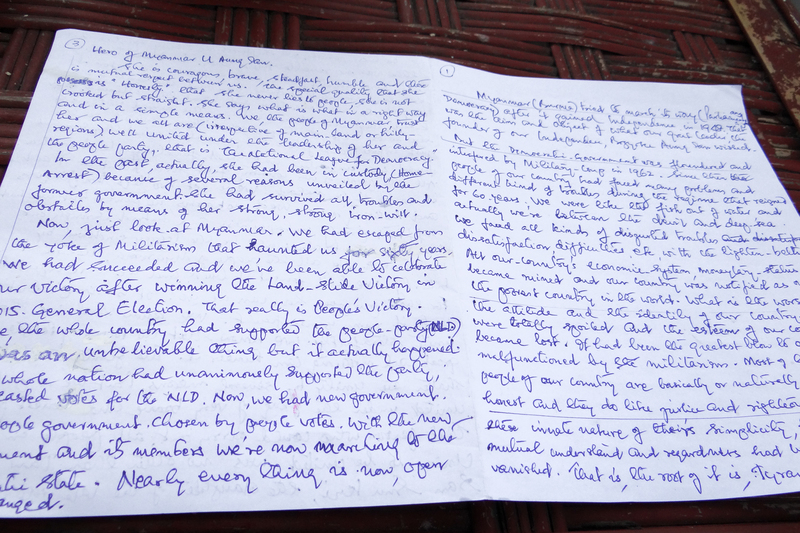 3
Hero of Myanmar U Aung San.
She is courageous, brave, steadfast, humble and there
is mutual respect between us. The special quality that she
is "Honesty" that she never lies to people, she is not
crooked but straight. She says what is what in a right way
and in a simple means. We the people of Myanmar trust
her and we all are (irrespective of main-land or hilly-
regions) well united under the leadership of her and
the people party, that is the National League for Democracy.
In the past, actually, she had been in custody (Home-
Arrest) because of several reasons unveiled by the
former government. She had survived all troubles and
obstacles by means of her strong, strong iron-will.
Now, just look at Myanmar. We had escaped from
the yoke of Militarism that haunted us for sixty years.
We had succeeded and we've been able to celebrate
our victory after winning the Land-Slide Victory in
015. General Election. That really is People's Victory.
e, the whole country had supported the people-party (NLD)
was an unbelievable thing but it actually happened.
whole nation had unanimously supported the party,
casted votes for the NLD. Now, we had new government.
ople government. Chosen by people votes. With the new
ment and its members we're now marching to the
tic State. Nearly every thing is now, open
anged.
1
Myanmar (Burma) tried to march its way
Democracy after it gained Independence in 1948. That
was the aim and object of what our great leader the
founder of our Independence, Bogyoke Aung San wished.
But the Democratic Government was
interfered by Military-Coup in 1962. Since then the
people of our country had faced many problems and
different kind of troubles during the regime that reigned
for 60 years. We were like the fish out of water and
actually we're between the devil and deep sea.
We faced all kinds of disgusted troubles and
dissatisfaction difficulties etc with the
All our country's economic system, monetary-
became ruined and our country was notified as
the poorest country in the world. What is the wors
the attitude and the identity of our country
were totally spoiled and the esteem of our co
became lost. It had been the greatest blow to
malfunctioned by the militarism. Most of
people of our country are basically or naturally
honest and they do like justice and righteou
these innate nature of theirs simplicity,
mutual understand and regardness had
vanished. That is, the root of it is, Tyran